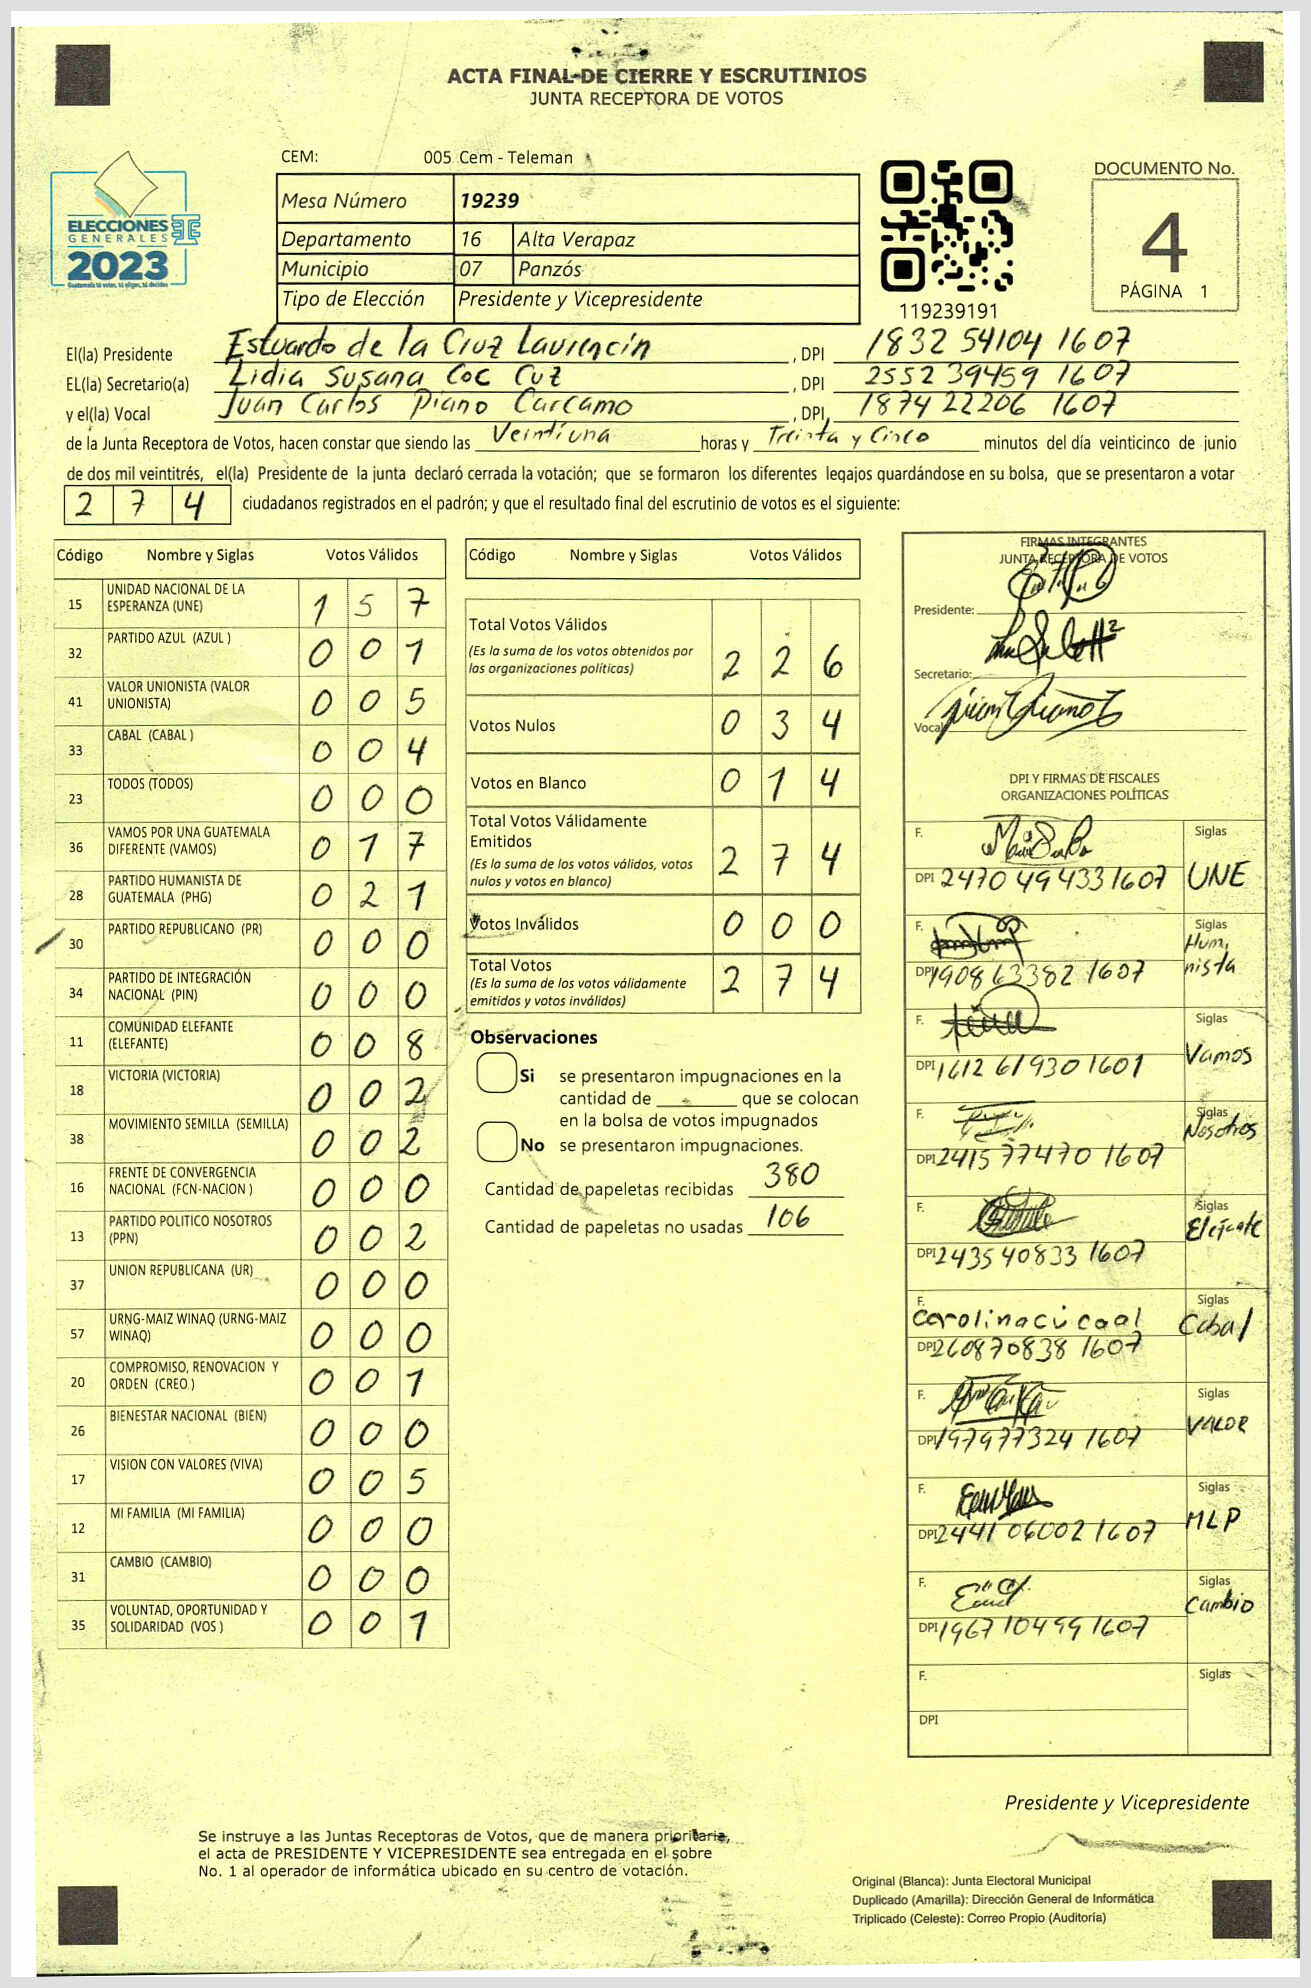 ACTA FINAL DE CIERRE Y ESCRUTINIOS
JUNTA RECEPTORA DE VOTOS
CEM: 005 Cem - Teleman
ELECCIONES
GENERALES
2023
Guatemala tú votas, tú eliges, tú decides
Mesa Número 19239
Departamento 16 Alta Verapaz
Municipio 07 Panzós
Tipo de Elección Presidente y Vicepresidente
119239191
DOCUMENTO No.
4
PÁGINA 1
El(la) Presidente Estuardo de la Cruz Laurencin , DPI 1832 54104 1607
EL(la) Secretario(a) Lidia Susana Coc Cuz , DPI 2552 39459 1607
y el(la) Vocal Juan Carlos Piano Carcamo , DPI, 1874 22206 1607
de la Junta Receptora de Votos, hacen constar que siendo las Veintiuna horas y Treinta y Cinco minutos del día veinticinco de junio
de dos mil veintitrés, el(la) Presidente de la junta declaró cerrada la votación; que se formaron los diferentes legajos guardándose en su bolsa, que se presentaron a votar
2 7 4 ciudadanos registrados en el padrón; y que el resultado final del escrutinio de votos es el siguiente:
Código Nombre y Siglas Votos Válidos
15 UNIDAD NACIONAL DE LA ESPERANZA (UNE) 1 5 7
32 PARTIDO AZUL (AZUL ) 0 0 1
41 VALOR UNIONISTA (VALOR UNIONISTA) 0 0 5
33 CABAL (CABAL ) 0 0 4
23 TODOS (TODOS) 0 0 0
36 VAMOS POR UNA GUATEMALA DIFERENTE (VAMOS) 0 1 7
28 PARTIDO HUMANISTA DE GUATEMALA (PHG) 0 2 1
30 PARTIDO REPUBLICANO (PR) 0 0 0
34 PARTIDO DE INTEGRACIÓN NACIONAL (PIN) 0 0 0
11 COMUNIDAD ELEFANTE (ELEFANTE) 0 0 8
18 VICTORIA (VICTORIA) 0 0 2
38 MOVIMIENTO SEMILLA (SEMILLA) 0 0 2
16 FRENTE DE CONVERGENCIA NACIONAL (FCN-NACION ) 0 0 0
13 PARTIDO POLITICO NOSOTROS (PPN) 0 0 2
37 UNION REPUBLICANA (UR) 0 0 0
57 URNG-MAIZ WINAQ (URNG-MAIZ WINAQ) 0 0 0
20 COMPROMISO, RENOVACION Y ORDEN (CREO ) 0 0 1
26 BIENESTAR NACIONAL (BIEN) 0 0 0
17 VISION CON VALORES (VIVA) 0 0 5
12 MI FAMILIA (MI FAMILIA) 0 0 0
31 CAMBIO (CAMBIO) 0 0 0
35 VOLUNTAD, OPORTUNIDAD Y SOLIDARIDAD (VOS ) 0 0 1
Código Nombre y Siglas Votos Válidos
Total Votos Válidos
(Es la suma de los votos obtenidos por
las organizaciones políticas) 2 2 6
Votos Nulos 0 3 4
Votos en Blanco 0 1 4
Total Votos Válidamente
Emitidos
(Es la suma de los votos válidos, votos
nulos y votos en blanco) 2 7 4
Votos Inválidos 0 0 0
Total Votos
(Es la suma de los votos válidamente
emitidos y votos inválidos) 2 7 4
Observaciones
Si se presentaron impugnaciones en la
cantidad de - que se colocan
en la bolsa de votos impugnados
No se presentaron impugnaciones.
Cantidad de papeletas recibidas 380
Cantidad de papeletas no usadas 106
FIRMAS INTEGRANTES
JUNTA RECEPTORA DE VOTOS
Presidente:
Secretario:
Vocal
DPI Y FIRMAS DE FISCALES
ORGANIZACIONES POLÍTICAS
F. Siglas
DPI 2470 49433 1607 UNE
F. Siglas
DPI 1908 63382 1607 Humnista
F. Siglas
DPI 1612 61930 1601 Vamos
F. Siglas
DPI 2415 77470 1607 Nosotros
F. Siglas
DPI 2435 40833 1607 Elefante
F. carolina cú caal Siglas
DPI 2608 70838 1607 Cabal
F. Siglas
DPI 1979 77324 1607 VALOR
F. Siglas
DPI 2441 06002 1607 MLP
F. Siglas
DPI 1967 10499 1607 Cambio
F. Siglas
DPI
Presidente y Vicepresidente
Se instruye a las Juntas Receptoras de Votos, que de manera prioritaria,
el acta de PRESIDENTE Y VICEPRESIDENTE sea entregada en el sobre
No. 1 al operador de informática ubicado en su centro de votación.
Original (Blanca): Junta Electoral Municipal
Duplicado (Amarilla): Dirección General de Informática
Triplicado (Celeste): Correo Propio (Auditoría)